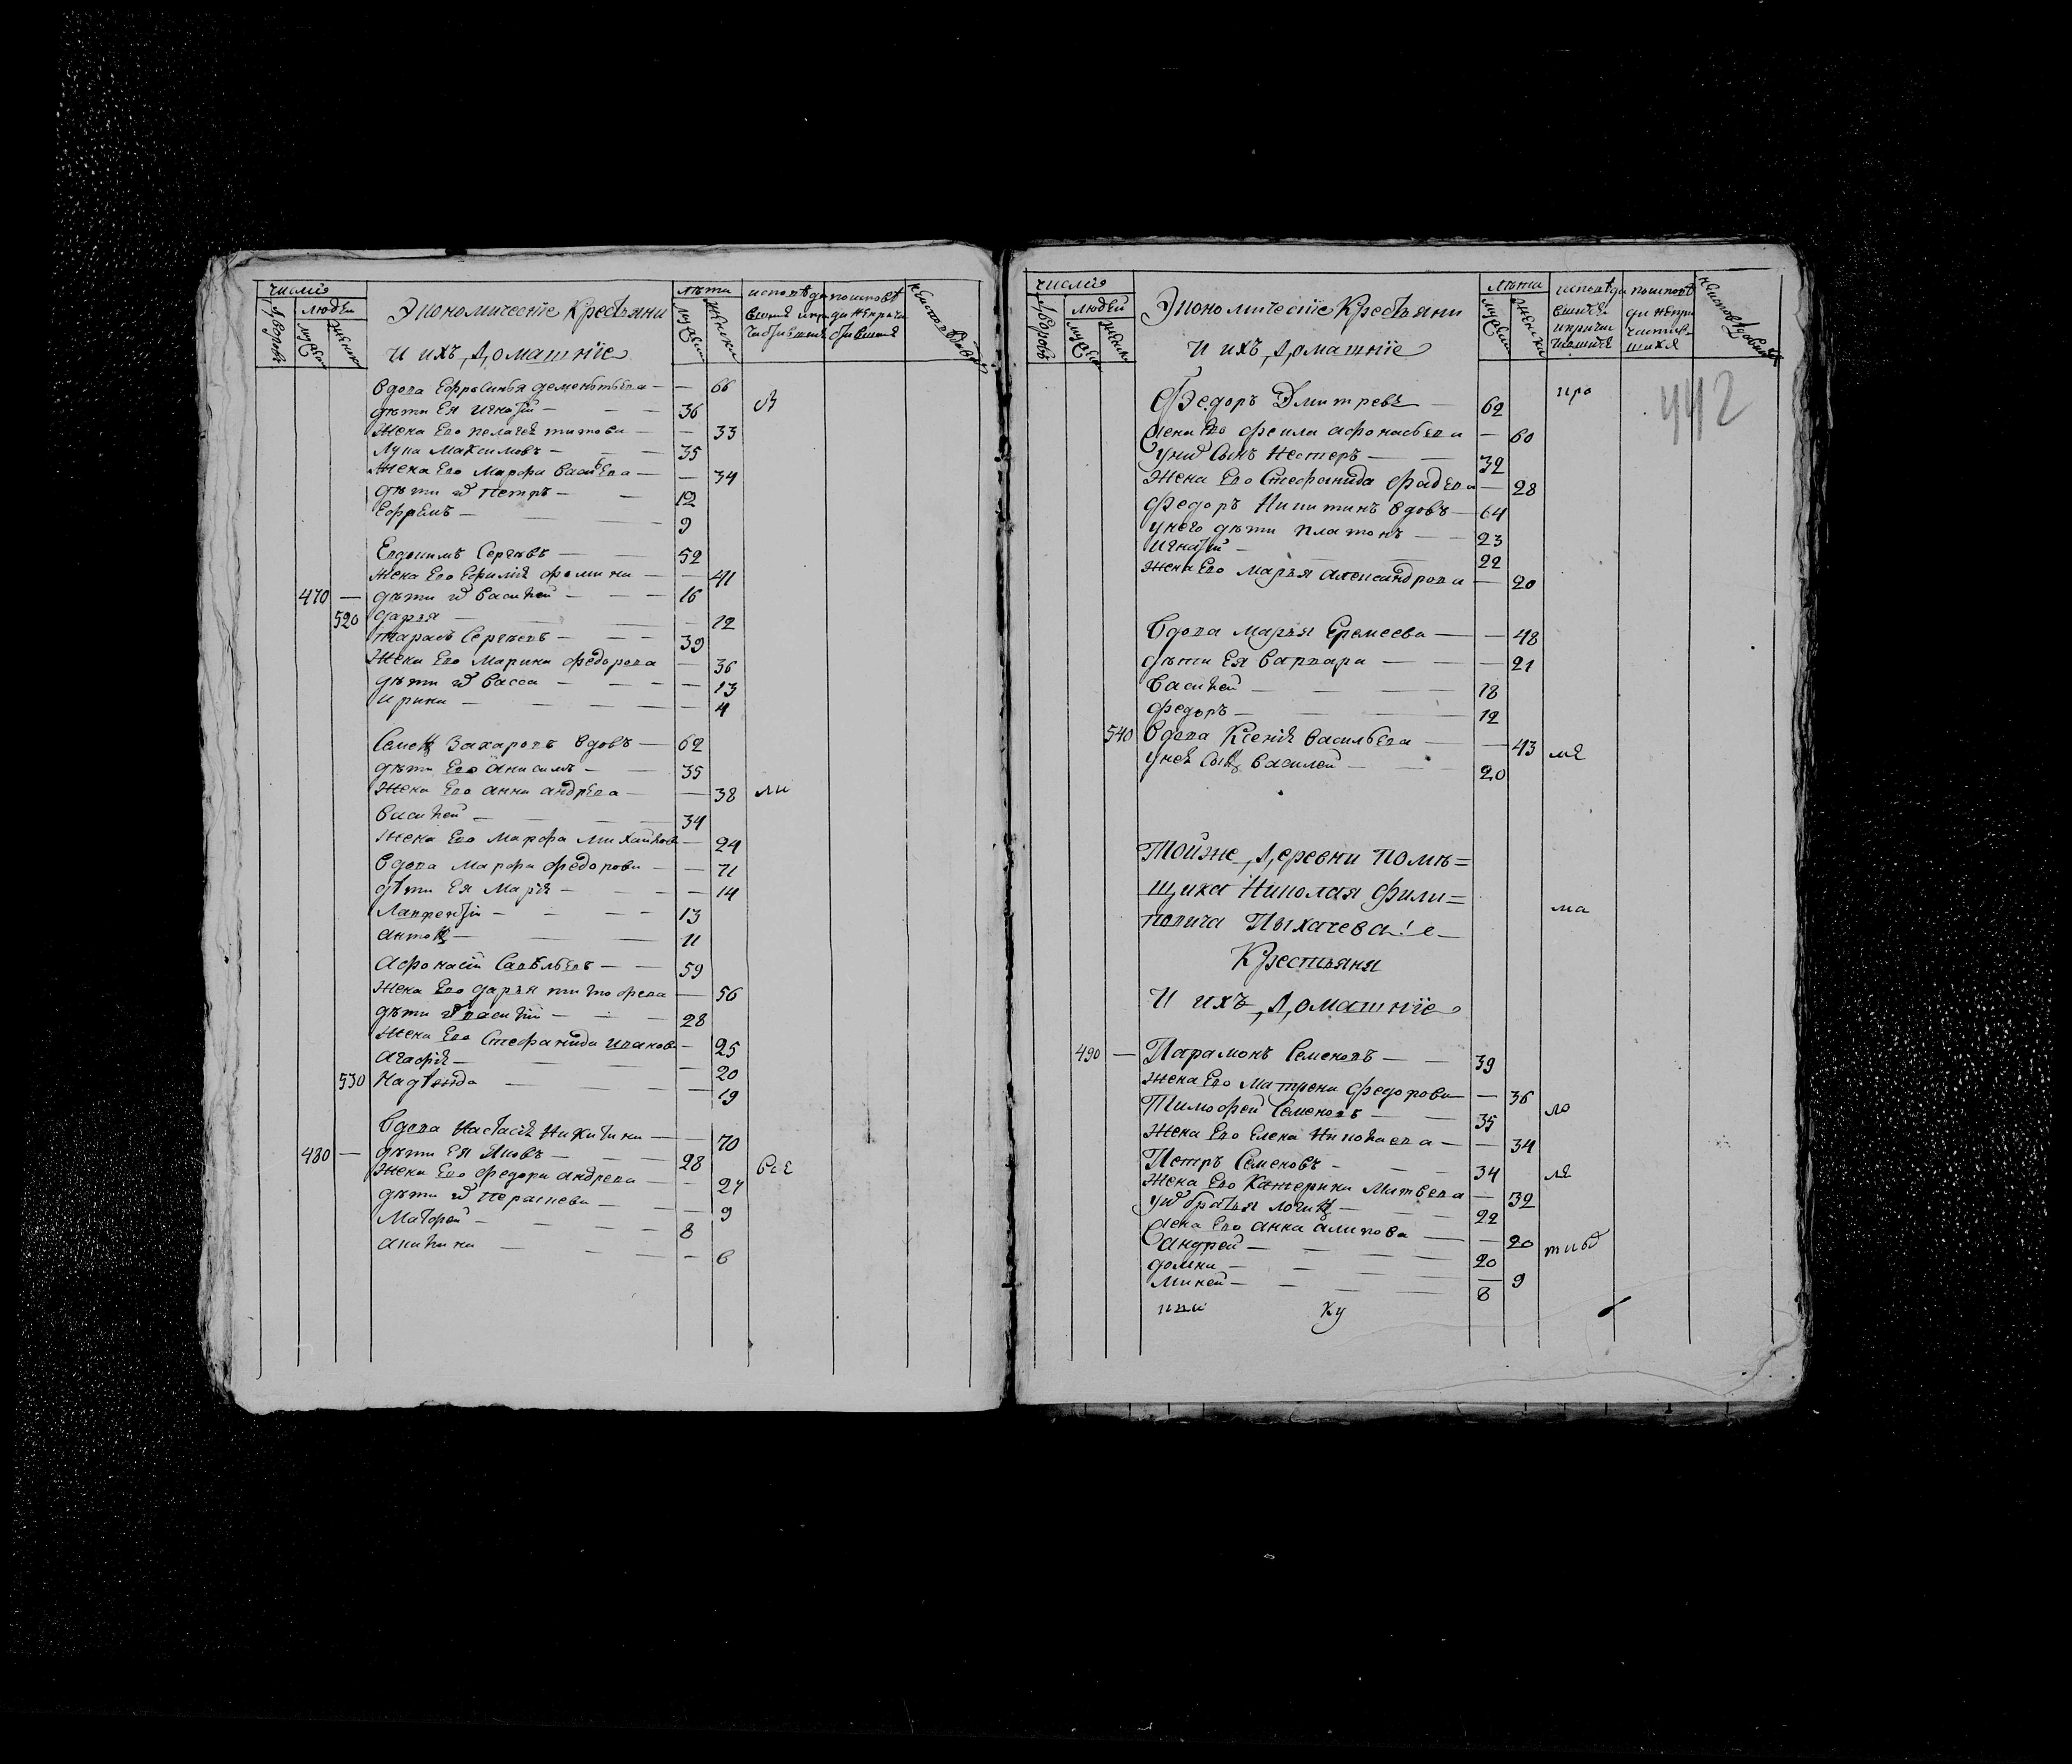 число
людей
дворовъ
мужес
женск
Экономическіе Крестьяни
и ихъ Домашніе
лѣта
мужеск
женски
Вдова Ефросинья дементьева — — 66
дѣти Ея Игнатій — — — 36
Жена Его пелагея титова — — 33
Лупа Максимовъ — — — 35
Жена Его Марфа Васильева — — 34
дѣти их Петръ — — 12
Ефремъ — — — 9
Евдокимъ Сергѣевъ — — 52
Жена Его Ефимия фомина — — 41
470 — дѣти их Василей — — — 16
520 дарья — — — 12
тарасъ Сергѣевъ — — — 39
Жена Его Марина федорова — 36
дѣти их Васса — — — — 13
Ирина — — — — — 4
Семенъ Захаровъ вдовъ — 62
дѣти Его анисимъ — — 35
Жена Его анна андрева — — 38 ли
Василей — — — — 34
Жена Его Марфа Михайлова — 24
Вдова Марфа федорова — — 71
дѣти Ея Марія — — — — 14
Лаврентій — — — — 13
антонъ — — — 11
Афонасій Савельевъ — — 59
Жена Его дарья тимофеева — 56
дѣти их василій — — 28
Жена Его Стефанида иванова — 25
Агафія — — — 20
530 Надежда — — — 19
Вдова Настасія Никитина — — 70
480 — дѣти Ея Яковъ — — — 28
Жена Его федора андрева — — 24 Все
дѣти их Парасковя — — 9
Матфей — — — — 8
акилина — — — — 6
число
людей
дворовъ
мужес
женск
Экономическіе Крестьяни
и ихъ Домашніе
лѣта
мужеск
женски
442
Федоръ Дмитревъ — 62 про
жена Его феила афонасьева — 60
у них Сынъ Нестеръ — — 32
Жена Его Стефанида фадева — 28
Федоръ Никитинъ вдовъ — 64
у него дѣти платонъ — — 23
Игнатій — — — 22
Жена Его Марья александрова — 20
Вдова Марья Еремеева — — 48
дѣти Ея Варвара — — — 21
Василей — — — — 18
федоръ — — — — 12
540 Вдова Ксенія Васильева — — 43 мя
у нея Сынъ Василей — — 20
Тойже Деревни помѣ=
щика Николая фили=
повича Пыхачева
ма
Крестьяня
и ихъ Домашніе
490 — Парамонъ Семеновъ — — 39
Жена Его Матрена федорова — 36
Тимофей Семеновъ — — 35 ло
Жена Его Елена Николаева — — 34
Петръ Семеновъ — — — 34 ля
Жена Его Катерина Матвева — 32
у них братья логинъ — — 22
жена Его анна алипова — — 20
андрей — — — 20
домна — — — — 9
Михей — — — — 8